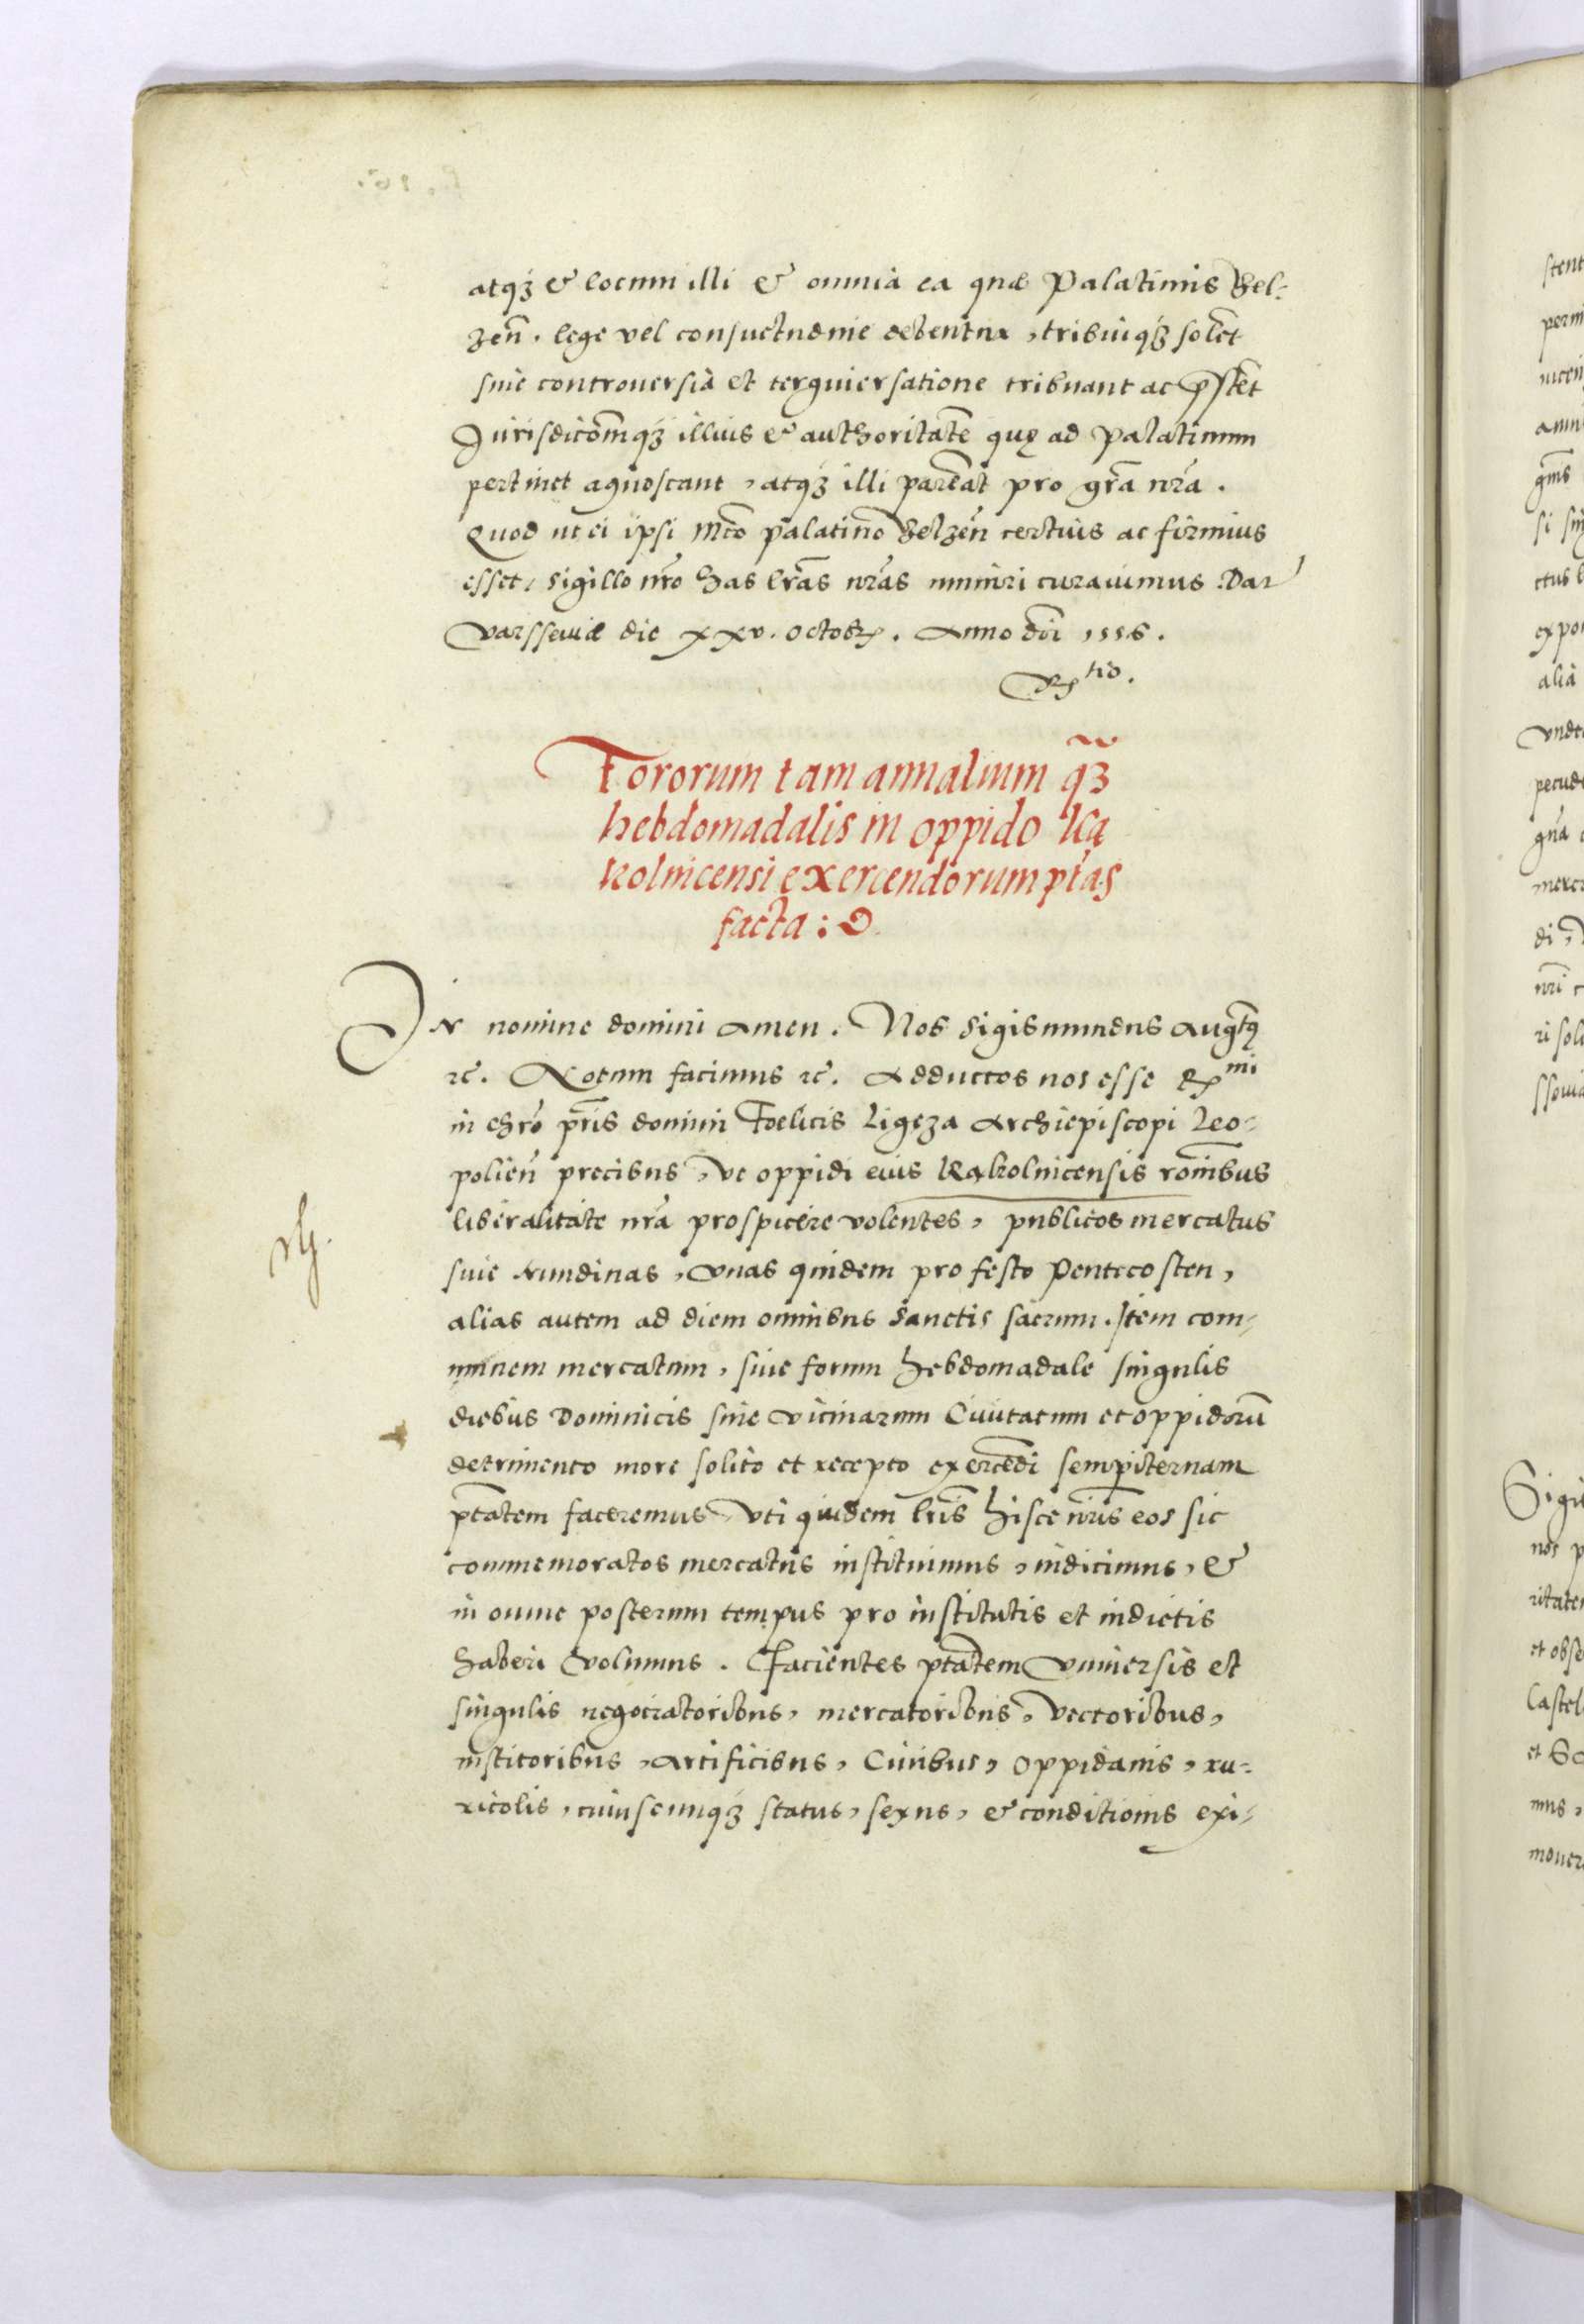 atq₃ & locum illi & omnia ea quæ Palatinis Bel:
zeñ. lege vel consuetudine debentur, tribuiq₃ solet
sine controuersia et terguiersatione tribuant ac p̄stēt
Jurisdicōmq₃ illius & authoritatē quę ad Palatinum
pertinet agnoscant, atq₃ illi pareāt pro gr̃a nr̃a.
Quod ut ei ipsi Mc̃o palatino Belzeñ certius ac firmius
esset, sigillo nr̃o has lr̃as nr̃as muniri curauimus. Dat
Varssauiæ die xxv. octobr̃. Anno dñi 1556.
Rtio.
Fororum tam annalium q̃₃
hebdomadalis in oppido Ką
kolnicensi exercendorum ptãs
facta:
IN nomine domini Amen. Nos Sigismundus Aug̃tꝰ
rc̃. Notum facimus rc̃. Adductos nos esse Rmi
in chrõ pr̃is domini Foelicis Ligęza Archiepiscopi Leo:
polieñ precibus, ut oppidi eius Kąkolnicensis rõnibus
liberalitate nr̃a prospicere volentes, publicos mercatus
siue Nundinas, vnas quidem pro festo Pentecosten,
alias autem ad diem omnibus Sanctis sacrum. Item com-
munem mercatum, siue forum hebdomadale singulis
diebus Dominicis sine vicinarum Ciuitatum et oppidorū
detrimento more solito et recepto exercēdi sempiternam
ptãtem faceremus Vti quidem lr̃is hisce nr̃is eos sic
commemoratos mercatus instituimus, indicimus, &
in omne posterum tempus pro institutis et indictis
haberi volumus. Facientes ptãtem vniuersis et
singulis negociatoribus, mercatoribus, vectoribus,
institoribus, Artificibus, Ciuibus, Oppidanis, ru:
ricolis, cuiuscumq₃ status, sexus, & conditionis exi-